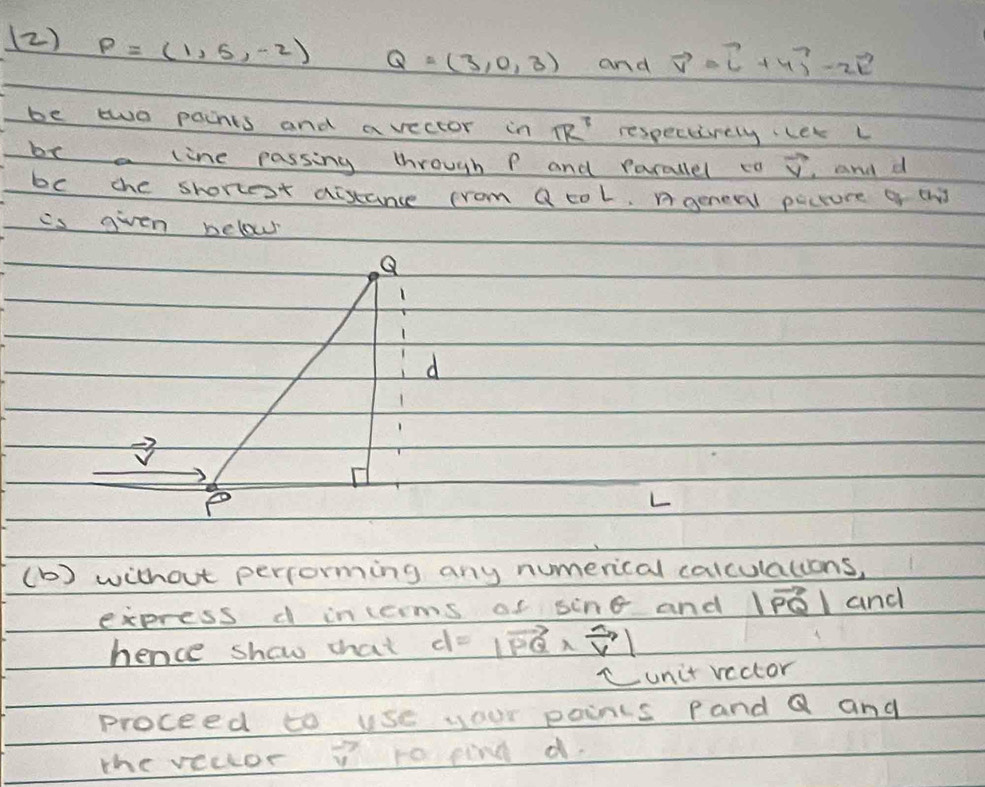 (2) P = (1, 5, -2) Q = (3, 0, 3) and v⃗ = i⃗ + 4j⃗ - 2k⃗
be two points and a vector in ℝ³ respectively. Let L
be a line passing through P and Parallel to v⃗, and d
be the shortest distance from Q to L. A general picture of this
is given below.
Q
d
v⃗
P
L
(b) without performing any numerical calculations,
express d in terms of sin θ and |PQ⃗| and
hence show that d = |PQ⃗ × v̂|
↑ unit vector
Proceed to use your points P and Q and
the vector v⃗ to find d.